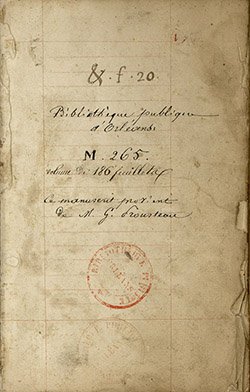 &. f. 20.
Bibliothèque publique
d'Orléans
M. 265.
volume de 186 feuillets
Ce manuscrit provient
de M G. Prousteau
BIBLIOTHEQUE PUBLIQUE